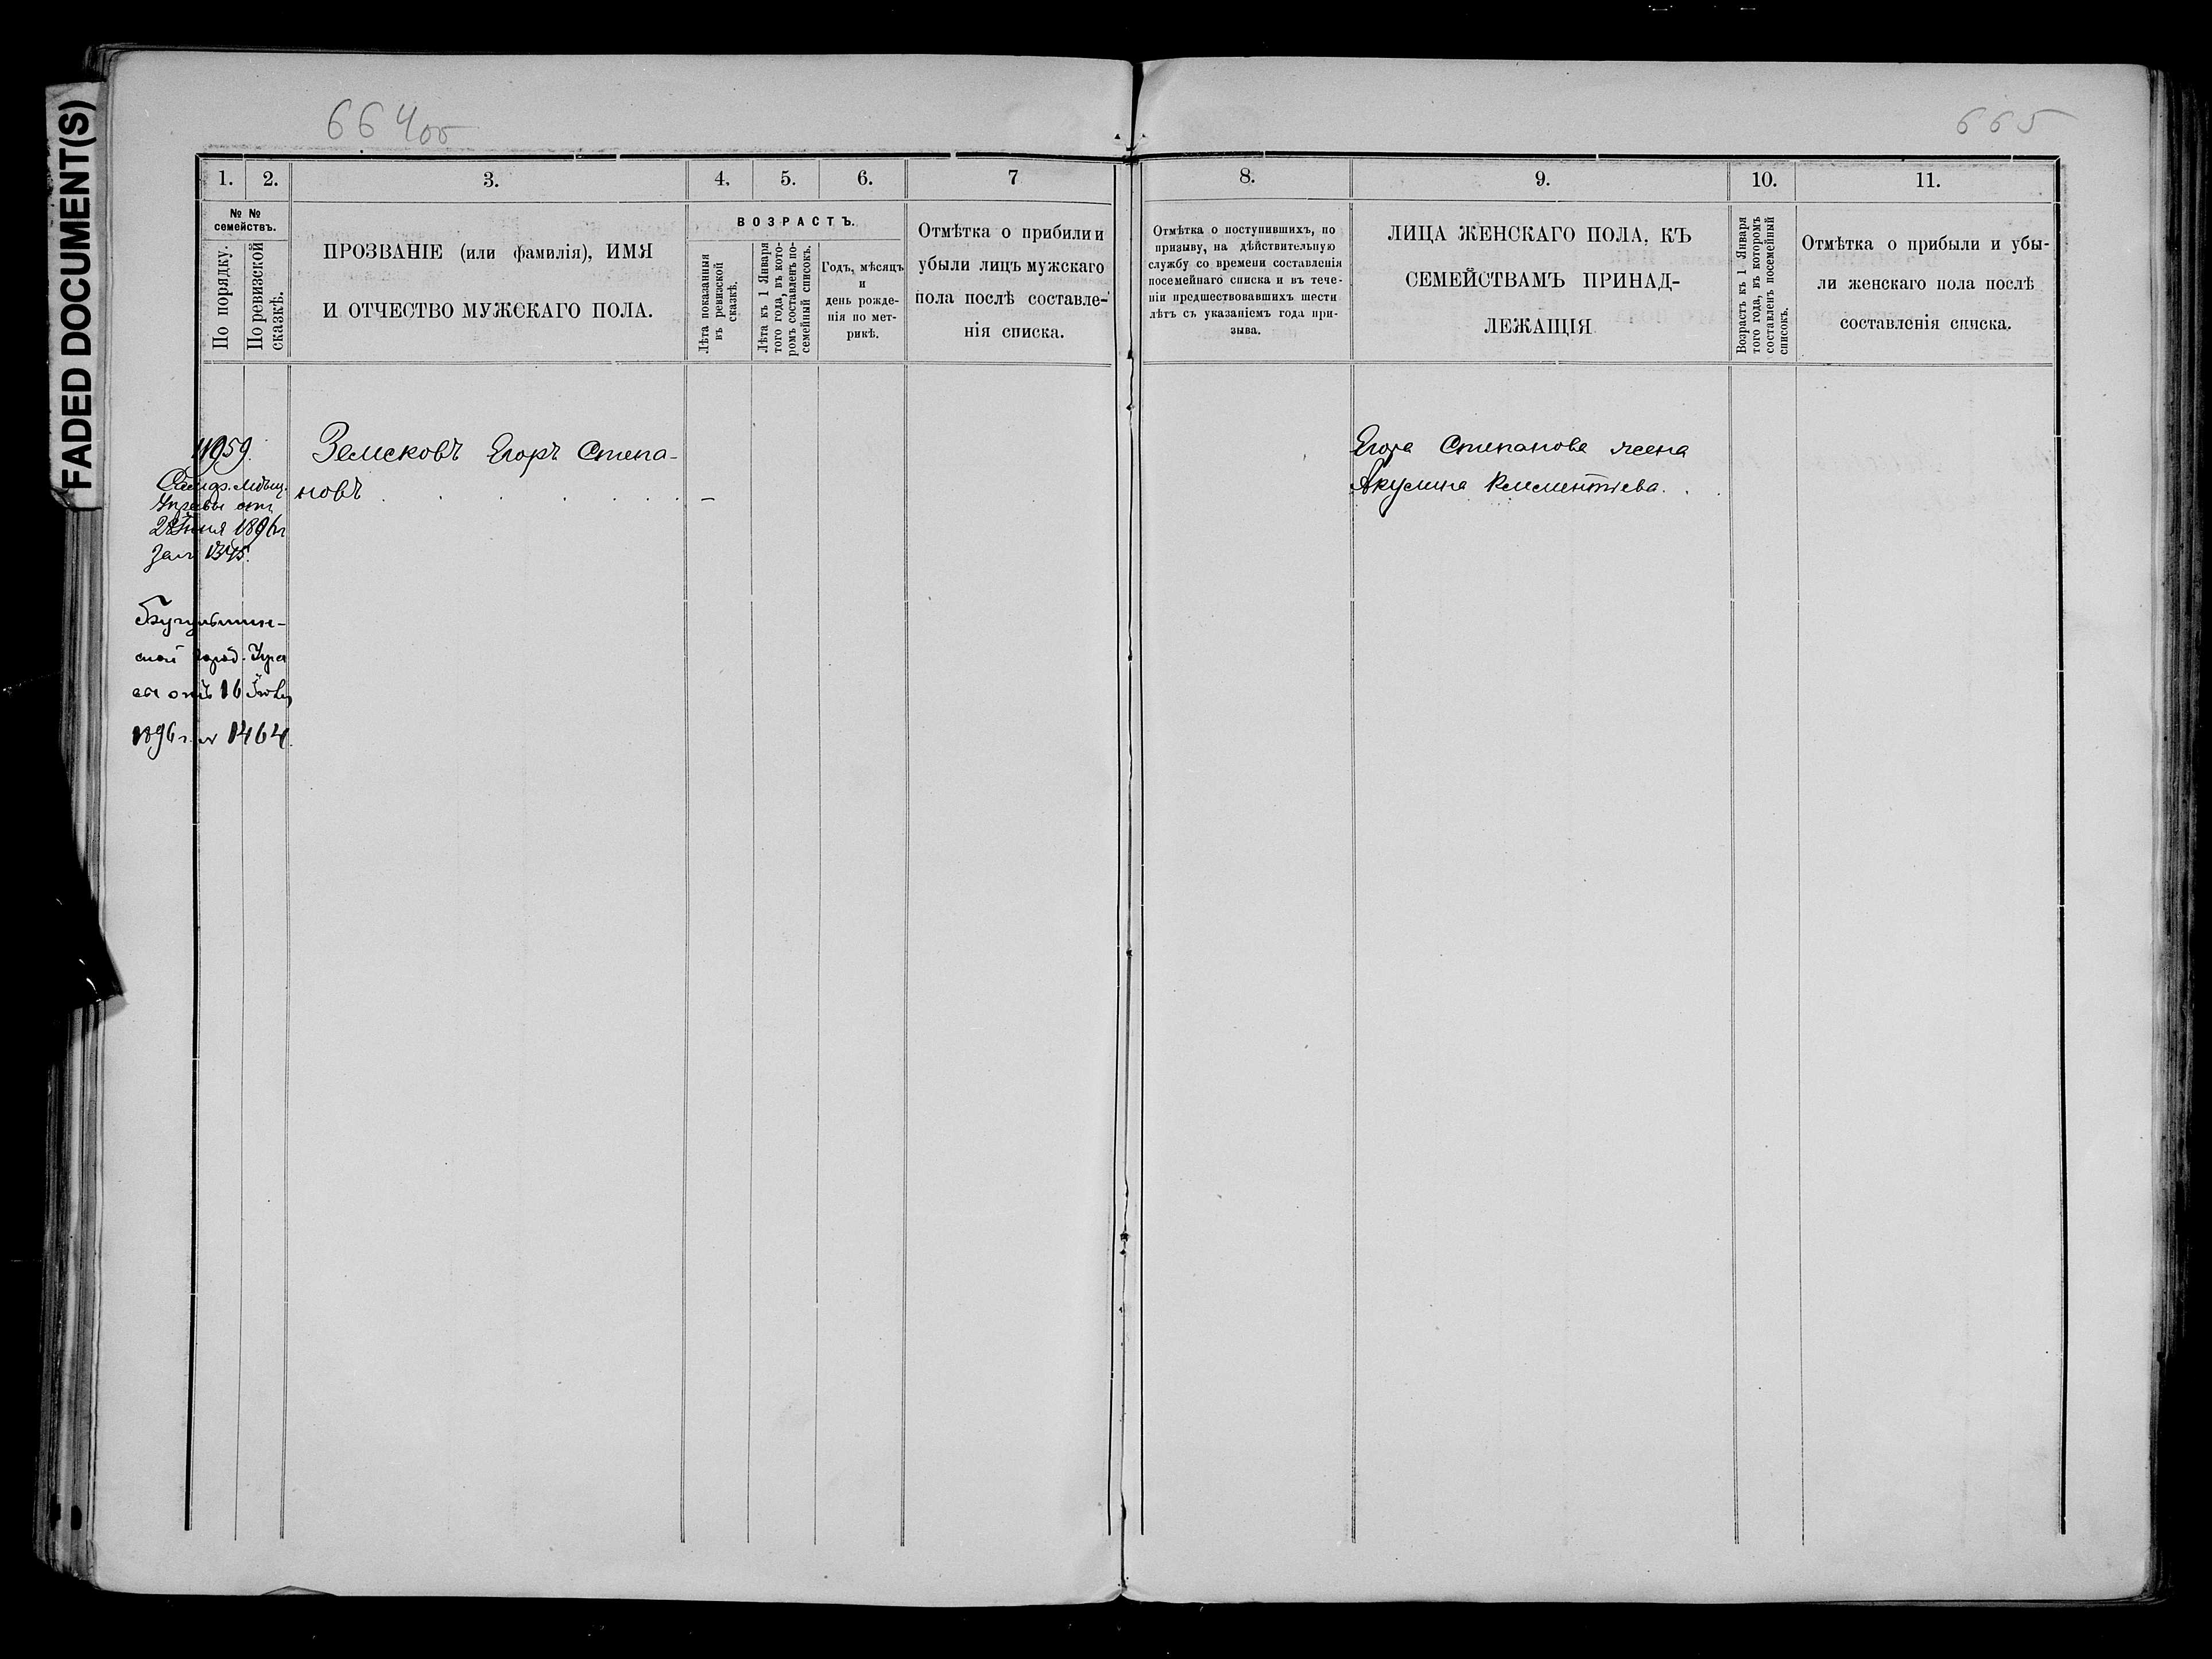 FADED DOCUMENT(S)
664об
665
1.
2.
3.
4.
5.
6.
7
8.
9.
10.
11.
№ №
семействъ.
По порядку.
По ревизской
сказкѣ.
ПРОЗВАНІЕ (или фамилія), ИМЯ
И ОТЧЕСТВО МУЖСКАГО ПОЛА.
ВОЗРАСТЪ.
Лѣта показанныя
въ ревизской
сказкѣ.
Лѣта къ 1 Января
того года, въ кото-
ромъ составленъ по-
семейный списокъ.
Годъ, мѣсяцъ
и
день рожде-
нія по мет-
рикѣ.
Отмѣтка о прибили и
убыли лицъ мужскаго
пола послѣ составле-
нія списка.
Отмѣтка о поступившихъ, по
призыву, на дѣйствительную
службу со времени составленія
посемейнаго списка и въ тече-
ніи предшествовавшихъ шести
лѣтъ съ указаніемъ года при-
зыва.
ЛИЦА ЖЕНСКАГО ПОЛА, КЪ
СЕМЕЙСТВАМЪ ПРИНАД-
ЛЕЖАЩІЯ
Возрастъ къ 1 Января
того года, въ которомъ
составленъ посемейный
списокъ.
Отмѣтка о прибыли и убы-
ли женскаго пола послѣ
составленія списка.
11959.
мѣщ.
Управы отъ
1896г
Бугульмин-
ской Город. Упра
вы отъ 16 Іюля
1896 г. № 1464.
Земсковъ Егоръ Степа-
новъ . . . . . . –
Егора Степанова жена
Акулина Климентьева. . .